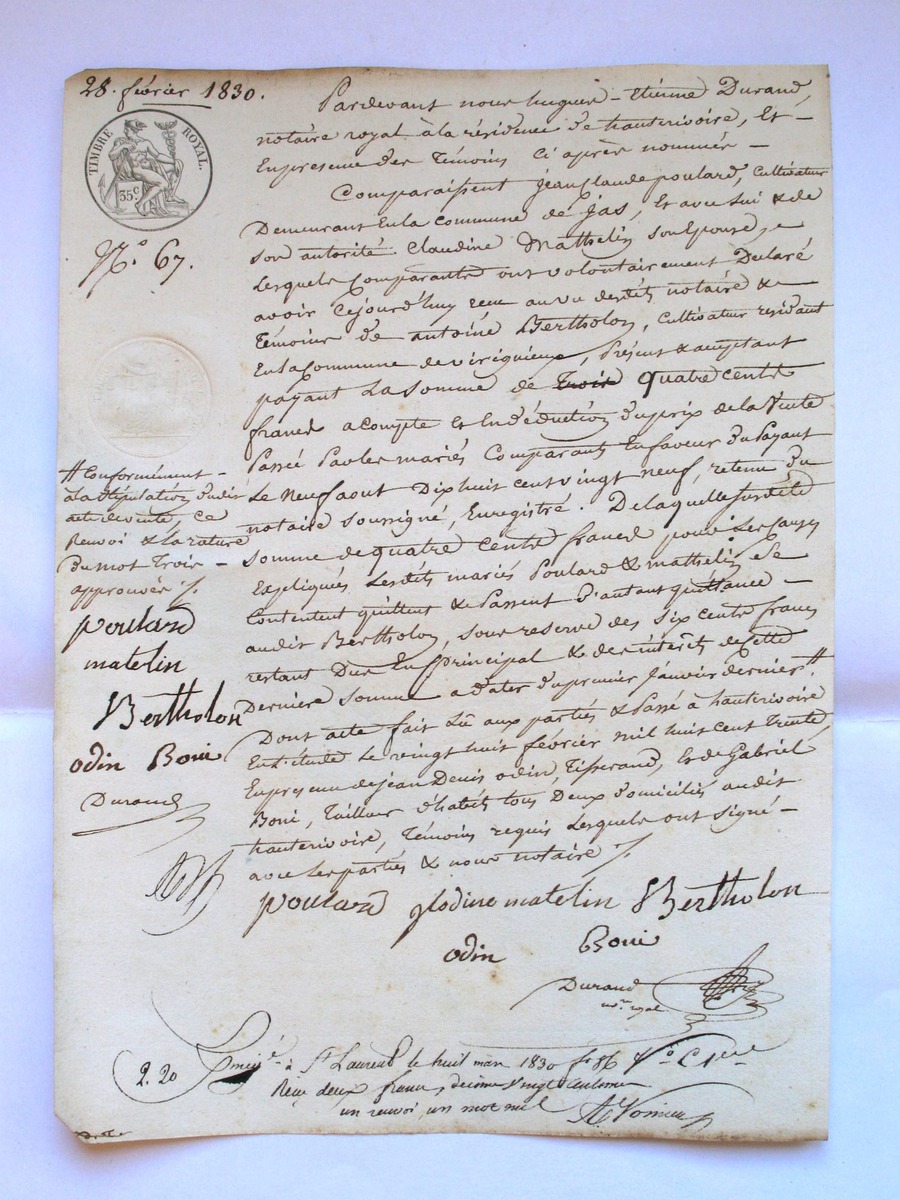 28. février 1830.
TIMBRE ROYAL.
35c
N.o 67.
Pardevant nous hugues-étienne Durand,
notaire royal à la résidence de hauterivoire, Et
En presence des Témoins Ci après nommés
Comparaissent jean Claude poulard, Cultivateur
Demeurant En la commune de Jas, Et avec Lui & de
son autorité Claudine Mathelin son Epouse,
Lesquels Comparants ont volontairement Declaré
avoir Cejourd'huy reçu au vu desdits notaire &
Témoins de antoine Bertholon, Cultivateur residant
En la Commune de virigneux, Présent & acceptant
payant La somme de Trois quatre cents
francs acompte et En déduction du prix de la Vente
Passé Par les mariés Comparants En faveur du Payant
Le Neuf aout Dix huit cent vingt neuf, retenu du
notaire soussigné, Enregistré. De laquelle susdite
somme de quatre cents francs pour Les Causes
Expliqués Lesdits mariés Poulard & mathelin se
Contentent quittent & Passent D'autant quittance
audit Bertholon, sous reserve des six cents francs
restant Dus En principal & des intérêts de Cette
Dernière somme a dater du premier Janvier dernier #
Dont acte fait Lû aux parties & Passé à hauterivoire
En l'étude Le vingt huit février mil huit cent trente
En presence de jean Denis odin, Tisserand, et de Gabriel
Boni, Tailleur d'habits tous Deux Domiciliés audit
hauterivoire, Témoins requis Lesquels ont signé
avec Les parties & nous notaire /.
# Conformément
à la stipulation dudit
acte de vente, Ce
Renvoi & La rature
du mot Trois
approuvés /.
poulard
matelin
Bertholon
odin Boni
Durand
poulard glodine matelin Bertholon
odin Boni
Durand
nre royal
2.20
à St Laurent le huit mars 1830 fo 86
Reçu deux francs, decime vingt centimes
un renvoi, un mot nul